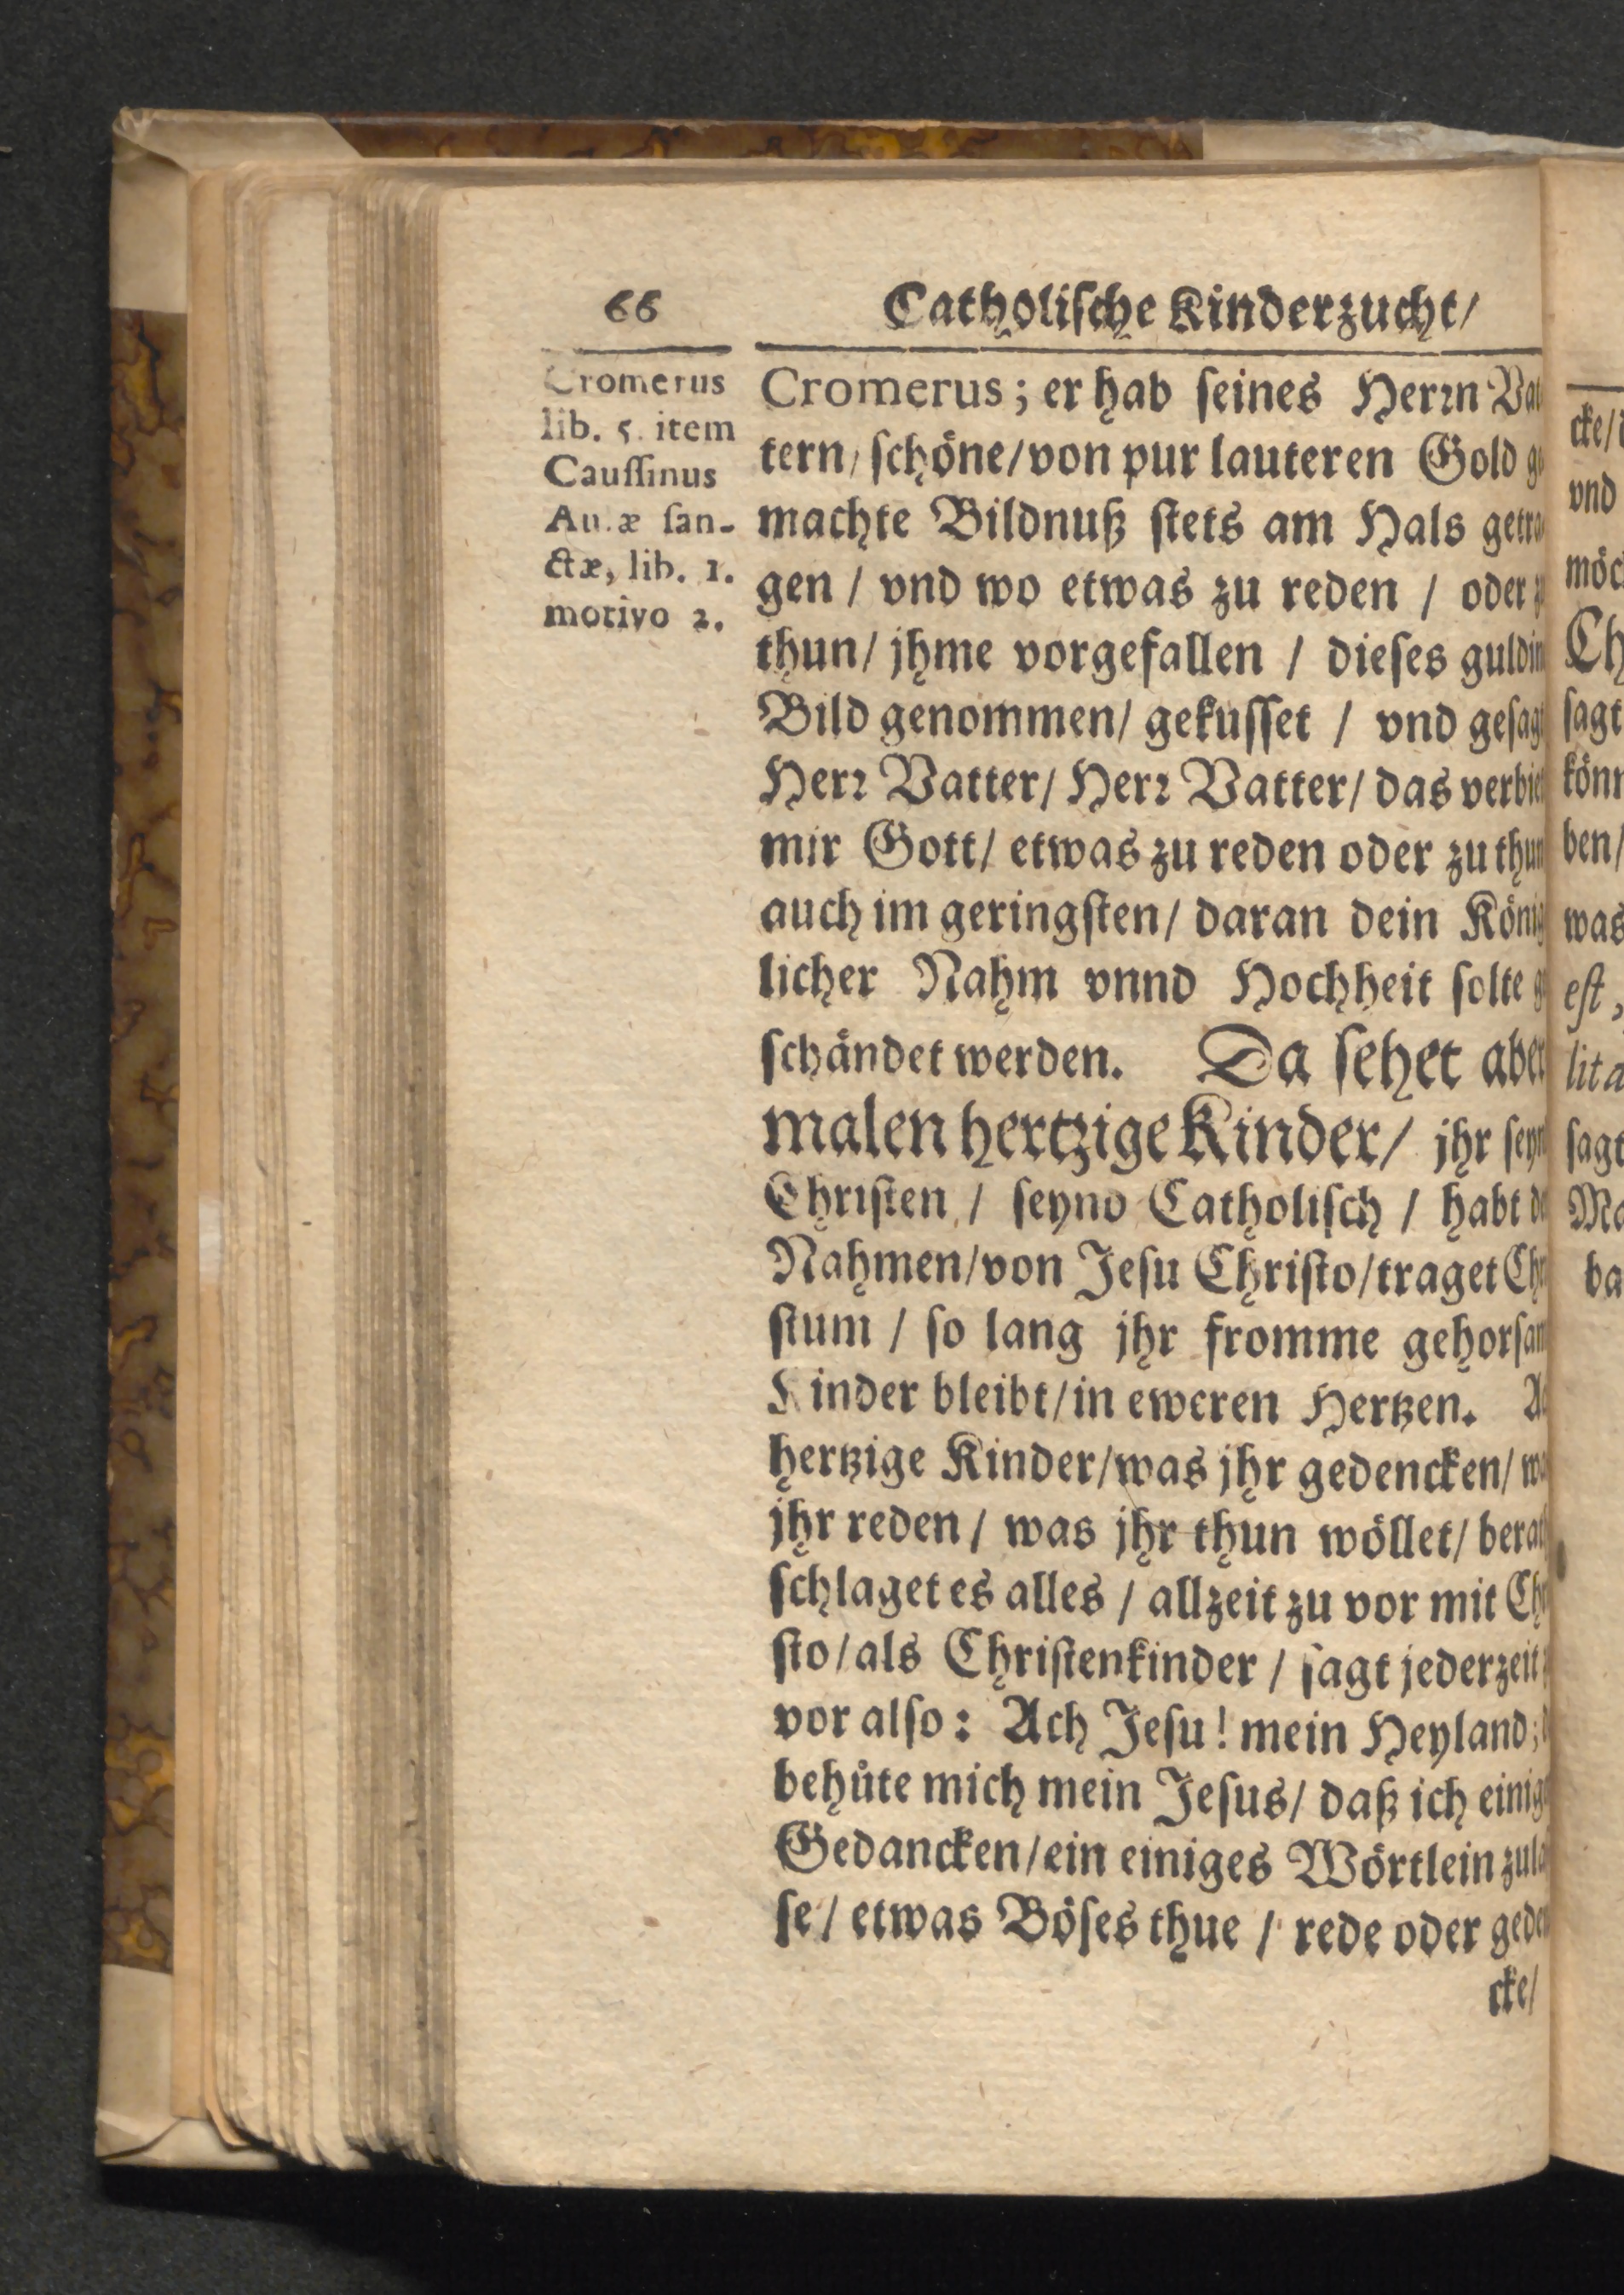 66
Catholische Kinderzucht/
Cromerus
lib. 5. item
Caussinus
Aulæ san-
ctæ, lib. 1.
motivo 2.
Cromerus; er hab seines Herrn
tern/ schöne/ von pur lauteren Gold
machte Bildnuß stets am Hals getra
gen / vnd wo etwas zu reden / oder
thun/ jhme vorgefallen / dieses guldin
Bild genommen/ gekusset / vnd gesag
Herr Vatter/ Herr Vatter/ das verbie
mir Gott/ etwas zu reden oder zu thun
auch im geringsten/ daran dein König
licher Nahm vnnd Hochheit solte
schändet werden. Da sehet aber
malen hertzige Kinder/ jhr seyn
Christen / seynd Catholisch / habt
Nahmen/ von Jesu Christo/ traget Chr
stum / so lang jhr fromme gehorsam
Kinder bleibt/ in eweren Hertzen.
hertzige Kinder/ was jhr gedencken/ wa
jhr reden / was jhr thun wöllet/ berat
schlaget es alles / allzeit zu vor mit Chr
sto/ als Christenkinder / sagt jederzeit
vor also: Ach Jesu! mein Heyland;
behüte mich mein Jesus/ daß ich einig
Gedancken/ ein einiges Wörtlein zula
se/ etwas Böses thue / rede oder geden
cke/
cke/
vnd
möc
Ch
sagt
könn
ben/
was
est,
lit a
sagt
Ma
ba